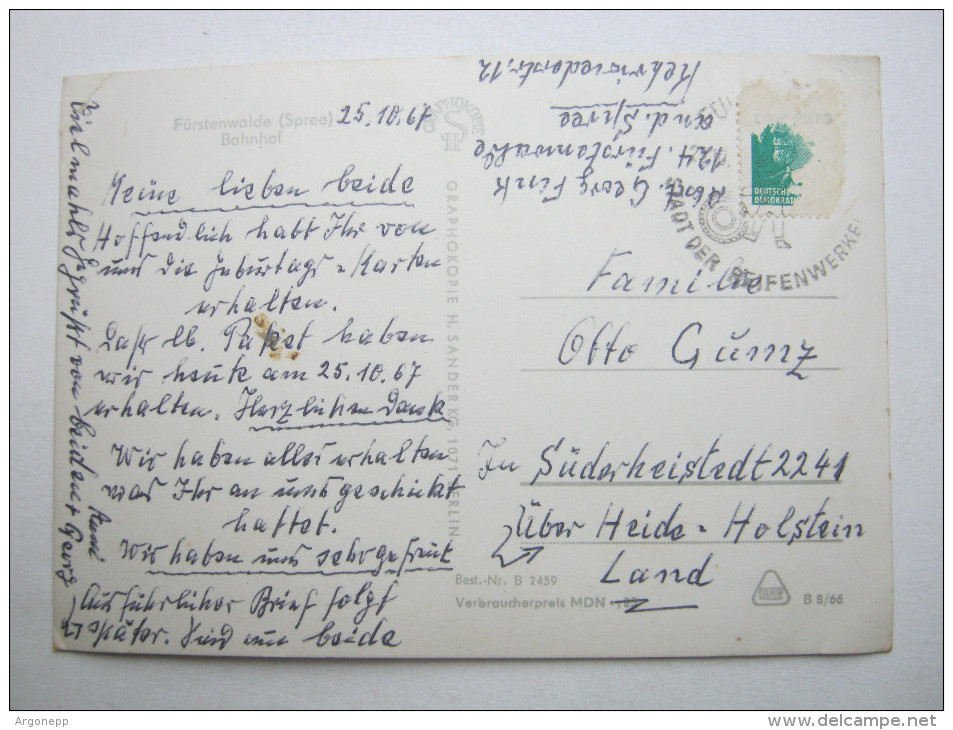 Fürstenwalde (Spree)
Bahnhof
25.10.67
Meine lieben beide
Hoffendlich habt Ihr von
uns die Geburtags-Karten
erhalten.
Paket haben
wir heute am 25.10.67
erhalten. Herzlichen Dank
Wir haben alles erhalten
was Ihr an uns geschickt
hattet.
Wir haben uns sehr gefreut
Ausführlicher Brief folgt
später. Sind nun beide
von beiden + Georg
GRAPHOKOPIE
GRAPHOKOPIE H. SANDER KG, 1071 BERLIN
Abs. Georg Fink
124. Fürstenwalde
a.d. Spree
DEUTSCHE
DEMOKRAT
STADT DER REIFENWERKE
Familie
Otto Gumz
In Süderheistedt 2241
Über Heide-Holstein
Land
Best.-Nr. B 2459
Verbraucherpreis MDN
B 8/66
Argonepp
www.delcampe.net